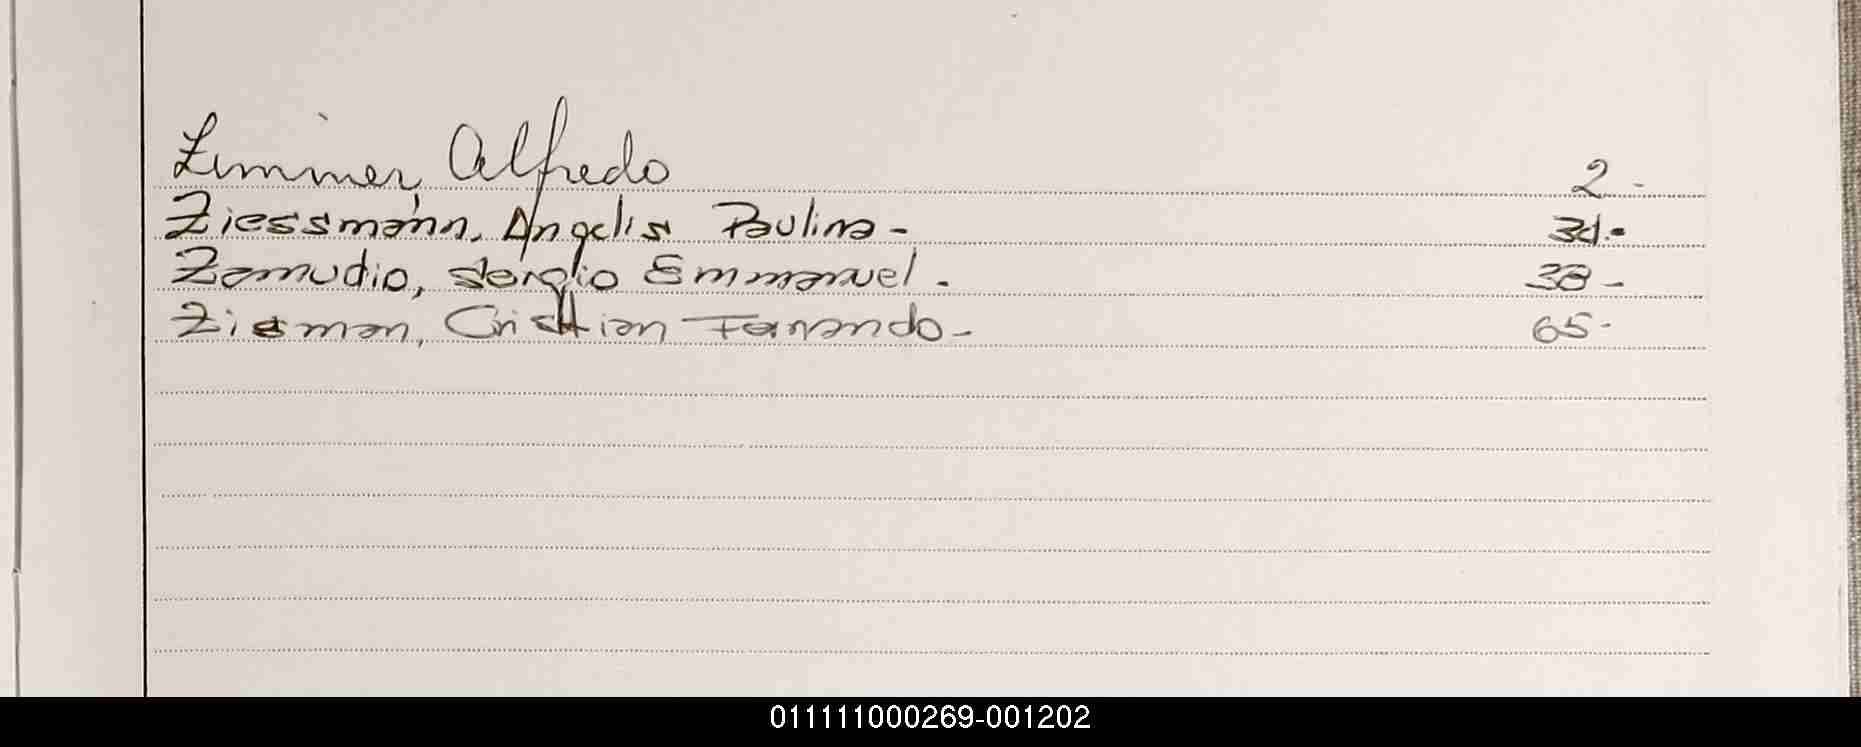 Zimmer, Alfredo 2-
Ziessmann, Angelis Paulina- 31.
Zamudio, Sergio Emmanuel. 38-
Zisman, Cristian Fernando- 65-
011111000269-001202